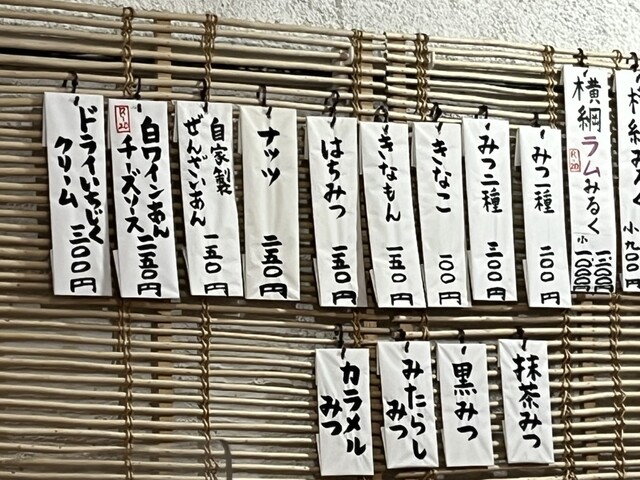 横綱ラムみるく
R-20
小
みつ一種 二〇〇円
みつ二種 三〇〇円
きなこ 一〇〇円
きなもん 一五〇円
はちみつ 一五〇円
ナッツ 二五〇円
自家製
ぜんざいあん 一五〇円
R-20
白ワインあん
チーズソース 二五〇円
ドライいちじく
クリーム 三〇〇円
抹茶みつ
黒みつ
みたらし
みつ
カラメル
みつ